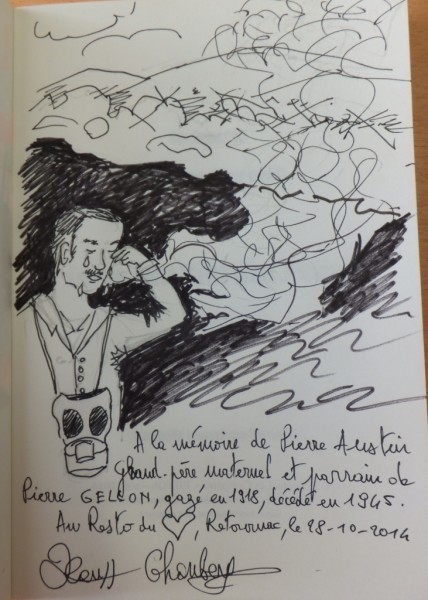 A la mémoire de Pierre Austin
Grand-père maternel et parrain de
Pierre GELLON, gazé en 1918, décédé en 1945.
Au Resto du ♡, Retournac, le 28-10-2014